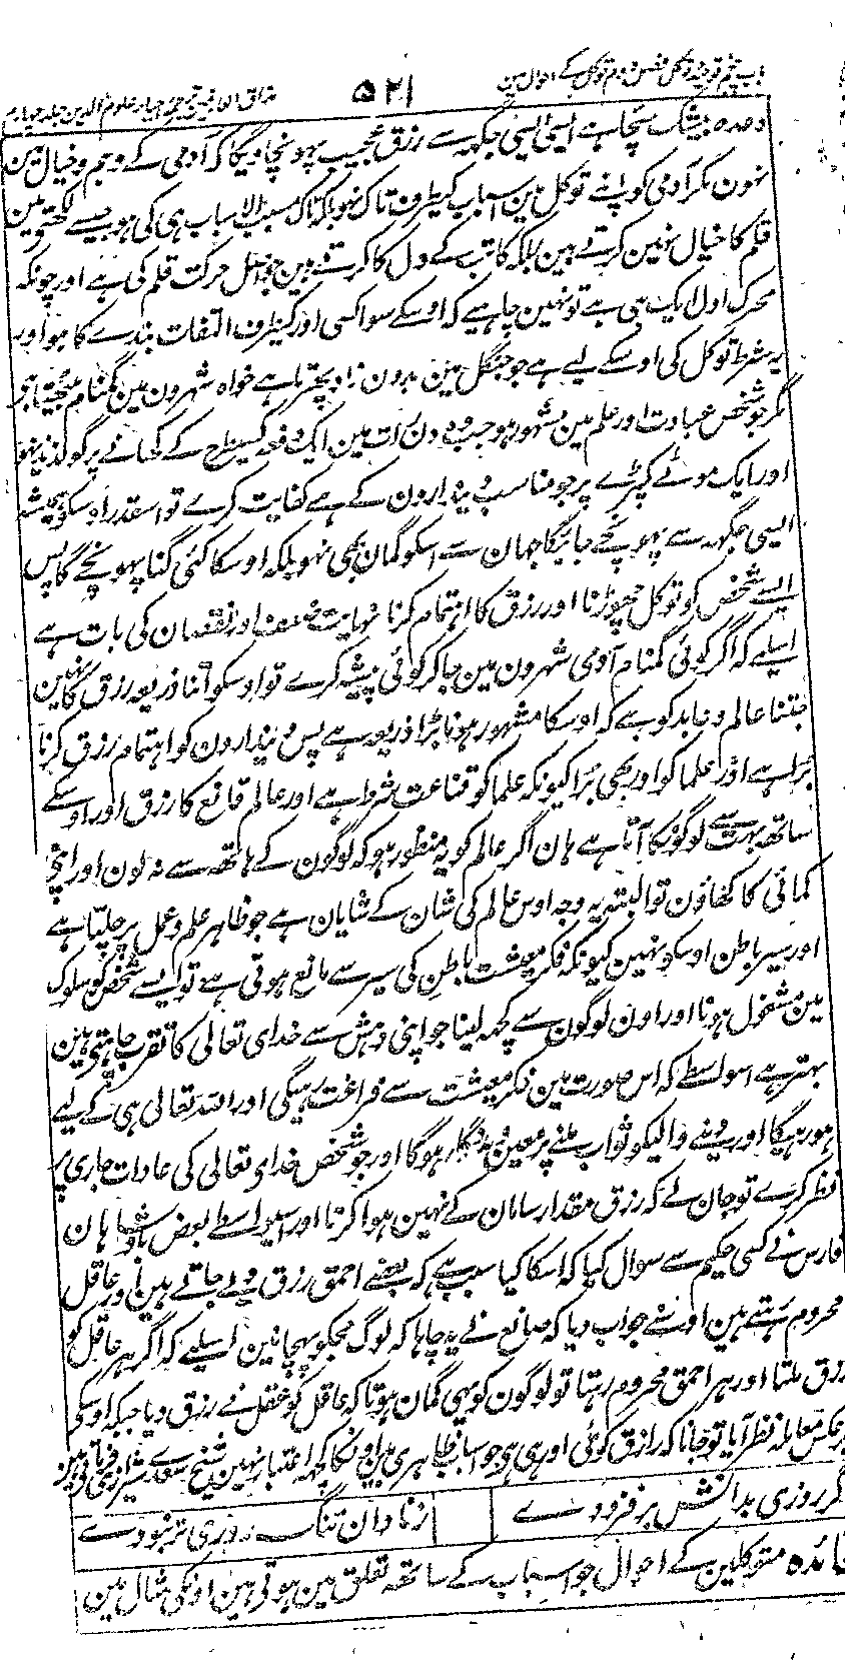 باب پنجم توحید و توکل فصل دوم توکل کے احوال مین ۵۲۱ مذاق العارفین ترجمہ احیاء علوم الدین جلد چہارم
وعدہ بیشک سچا ہے ایسی ایسی جگہہ سے رزق عجیب پہونچاویگا کہ آدمی کے وہم و خیال مین
نہون مگر آدمی کو اپنے توکل مین اسباب کیطرف تاک نہو بلکہ تاک مسبب الاسباب ہی کی ہو جیسے لکھتے مین
قلم کا خیال نہین کرتے ہین بلکہ کاتب کے دل کا کرتے ہین جو اصل حرکت قلم کی ہے اور چونکہ
محرک اول ایک ہی ہے تو نہین چاہیے کہ اوسکے سوا کسی اور کیطرف التفات بندے کا ہو اور
یہ شرط توکل کی اوسکے لیے ہے جو جنگل مین بدون زاد پھرتا ہے خواہ شہرون مین گمنام بیٹھتا ہو
مگر جو شخص عبادت اور علم مین مشہور ہو جب وہ دن رات مین ایک دفعہ کسیطرح کے کھانے پر گو لذیذ نہو
اور ایک موٹے کپڑے پر جو مناسب دیندارون کے ہے کفایت کرے تو اسقدر اوسکو ہمیشہ
ایسی جگہہ سے پہونچے جائیگا جہان سے اسکو گمان بھی نہو بلکہ اوسکا کئی گنا پہونچے گا پس
ایسے شخص کو توکل چھوڑنا اور رزق کا اہتمام کرنا نہایت ضعف اور نقصان کی بات ہے
اسلیے کہ اگر کوئی گمنام آدمی شہرون مین جا کر کوئی پیشہ کرے تو اوسکو اتنا ذریعہ رزق کا نہین
جتنا عالم و عابد کو ہے کہ اوسکا مشہور ہونا بڑا ذریعہ ہے پس دیندارون کو اہتمام رزق کرنا
برا ہے اور علما کو اور بھی برا کیونکہ علما کو قناعت شرط ہے اور عالم قانع کا رزق اور اوسکے
ساتھ بہت سے لوگونکا آتا ہے ہان اگر عالم کو یہ منظور ہو کہ لوگون کے ہاتھ سے نہ لون اور اپنی
کمائی کا کھاؤن تو البتہ یہ وجہ اوس عالم کی شان کے شایان ہے جو ظاہر علم و عمل پر چلتا ہے
اور سیر باطن اوسکو نہین کیونکہ فکر معیشت باطن کی سیر سے مانع ہوتی ہے تو ایسے شخص کو سلوک
مین مشغول ہونا اور اون لوگون سے کچھہ لینا جو اپنی دہش سے خدای تعالی کا تقرب چاہتے ہین
بہتر ہے اسواسطے کہ اس صورت مین فکر معیشت سے فراغت رہیگی اور اللہ تعالی ہی کے لیے
ہو رہیگا اور دینے والیکو ثواب ملنے پر معین و مددگار ہوگا اور جو شخص خدای تعالی کی عادات جاری پر
نظر کرے تو جان لے کہ رزق مقدار سامان کے نہین ہوا کرتا اور اسیواسطے بعض بادشاہان
فارس نے کسی حکیم سے سوال کیا کہ اسکا کیا سبب ہے کہ بعضے احمق رزق دیے جاتے ہین اور عاقل
محروم رہتے ہین اوسنے جواب دیا کہ صانع نے یہ چاہا کہ لوگ مجکو پہچانین اسلیے کہ اگر ہر عاقل کو
رزق ملتا اور ہر احمق محروم رہتا تو لوگون کو یہی گمان ہوتا کہ عاقل کو عقل نے رزق دیا جبکہ اوسکی
برعکس معاملہ نظر آیا تو جانا کہ رازق کوئی اور ہی ہے جو اسباب ظاہری ہین اونکا کچھہ اعتبار نہین شیخ سعدی شیرازی فرماتے ہین
گر روزی بدانش بر فزودے زنادان تنگ روزی تر نبودے
فائدہ متوکلین کے احوال جو اسباب کے ساتھہ تعلق مین ہوتی ہین اونکی مثال مین